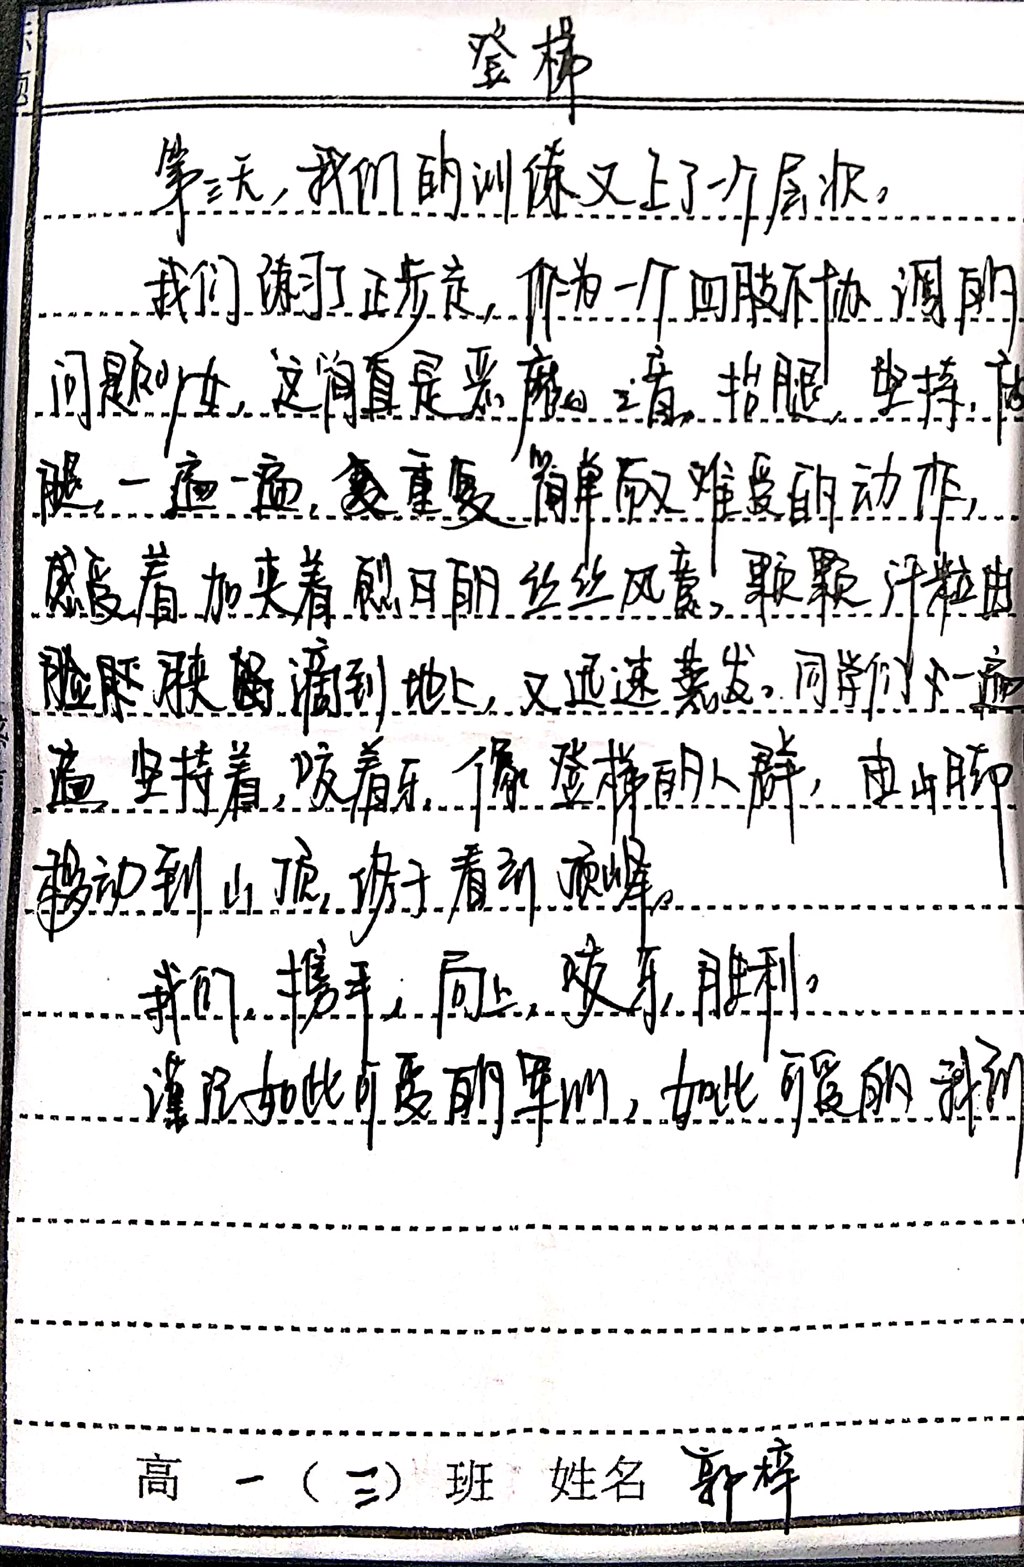 登梯
第三天，我们的训练又上了一个层次。
我们练习了正步走，作为一个四肢不协调的
问题少女，这简直是恶魔之音。抬腿，坚持，放
腿，一遍一遍，重复简单而又难受的动作，
感受着加夹着烈日的丝丝风意。颗颗汗粒由
脸颊滴到地上，又迅速蒸发。同学们又一遍
遍坚持着，咬着牙，像登梯的人群，由山脚
移动到山顶，终于看到顶峰。
我们，携手，向上，咬牙，胜利。
谨记如此可爱的军训，如此可爱的我们
高一（三）班 姓名 郭梓